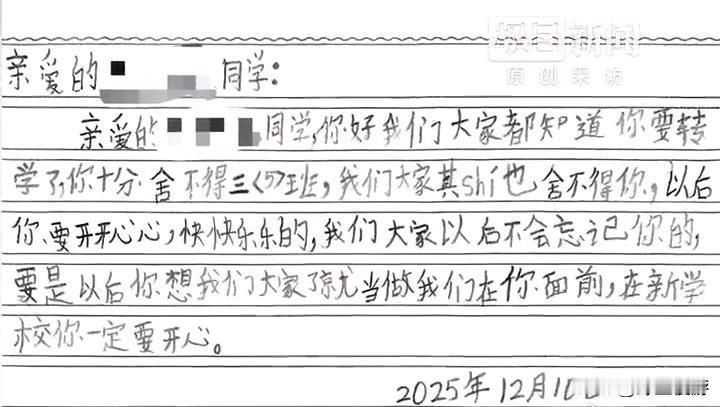 极目新闻
原创采访
亲爱的 同学:
亲爱的 同学,你好我们大家都知道你要转
学了,你十分舍不得三<5>班,我们大家其shí也舍不得你,以后
你要开开心心,快快乐乐的,我们大家以后不会忘记你的,
要是以后你想我们大家了就当做我们在你面前,在新学
校你一定要开心。
2025年12月10日